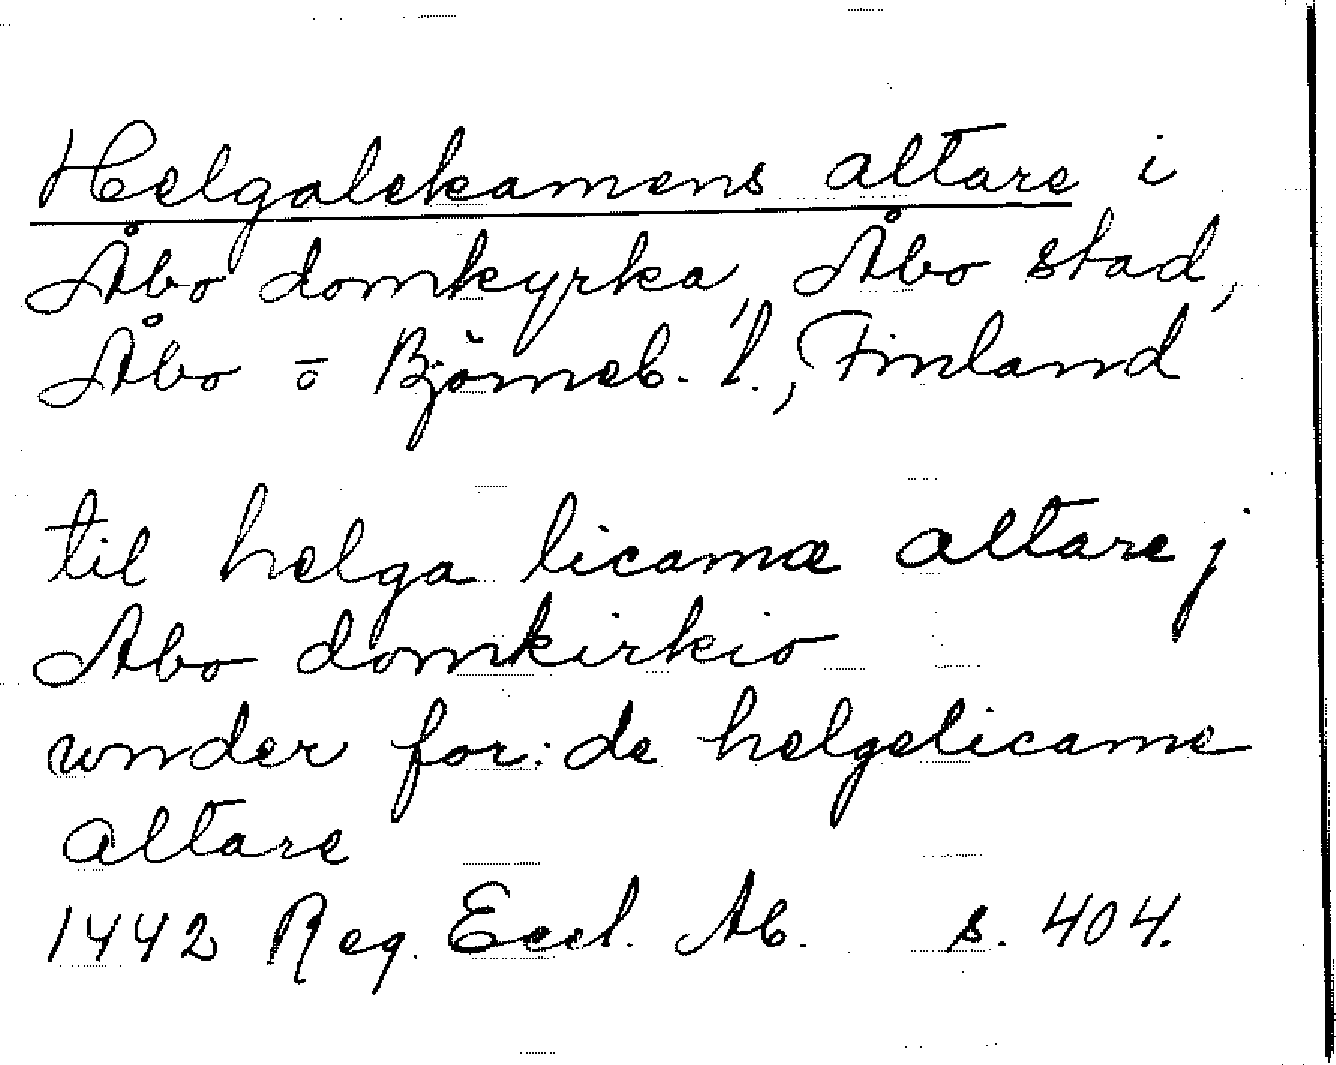 Helgalekamens altare i
Åbo domkyrka, Åbo stad,
Åbo o Björneb. l., Finland
til helga licamæ altare j
Abo domkirkio
wnder for: de helgelicame
altare
1442 Reg. Eccl. Ab. s. 404.